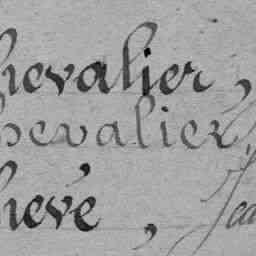 hevalier,
hevalier,
hevé, Jea